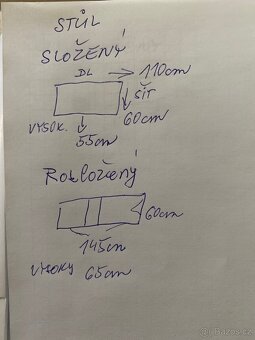 STŮL
SLOŽENÝ
DL → 110cm
ŠÍŘ
60cm
VYSOK.
55cm
Rozložený
60cm
145cm
VYSOKÝ 65cm